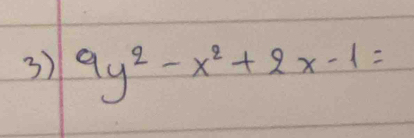 3) 9y² - x² + 2x - 1 =